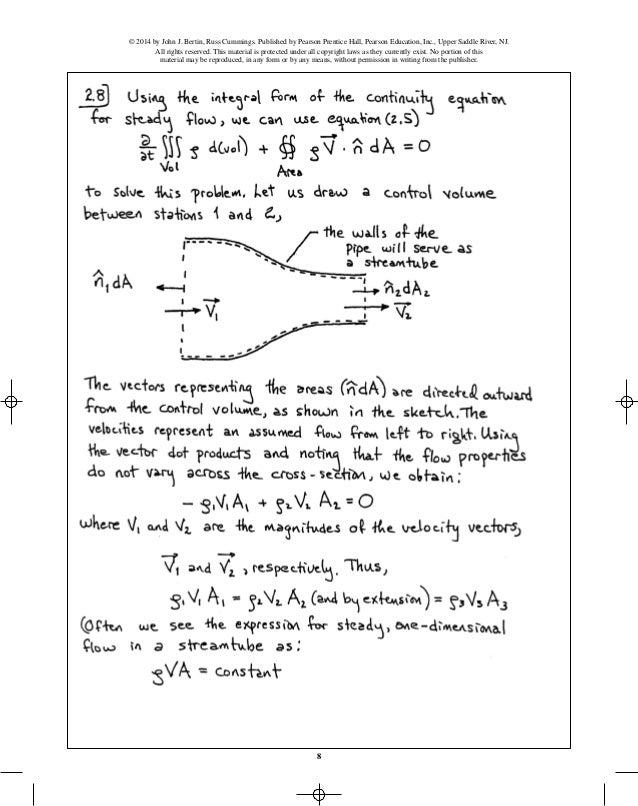 © 2014 by John J. Bertin, Russ Cummings. Published by Pearson Prentice Hall, Pearson Education, Inc., Upper Saddle River, NJ.
All rights reserved. This material is protected under all copyright laws as they currently exist. No portion of this
material may be reproduced, in any form or by any means, without permission in writing from the publisher.
2.8] Using the integral form of the continuity equation
for steady flow, we can use equation (2.5)
∂/∂t ∭ ρ d(vol) + ∯ ρV⃗ · n̂ dA = 0
Vol Area
to solve this problem. Let us draw a control volume
between stations 1 and 2,
the walls of the
pipe will serve as
a streamtube
n̂₁dA
n̂₂dA₂
V⃗₁
V⃗₂
The vectors representing the areas (n̂dA) are directed outward
from the control volume, as shown in the sketch. The
velocities represent an assumed flow from left to right. Using
the vector dot products and noting that the flow properties
do not vary across the cross-section, we obtain:
- ρ₁V₁A₁ + ρ₂V₂ A₂ = 0
where V₁ and V₂ are the magnitudes of the velocity vectors,
V⃗₁ and V⃗₂, respectively. Thus,
ρ₁V₁A₁ = ρ₂V₂A₂ (and by extension) = ρ₃V₃A₃
(Often we see the expression for steady, one-dimensional
flow in a streamtube as:
ρVA = constant
8